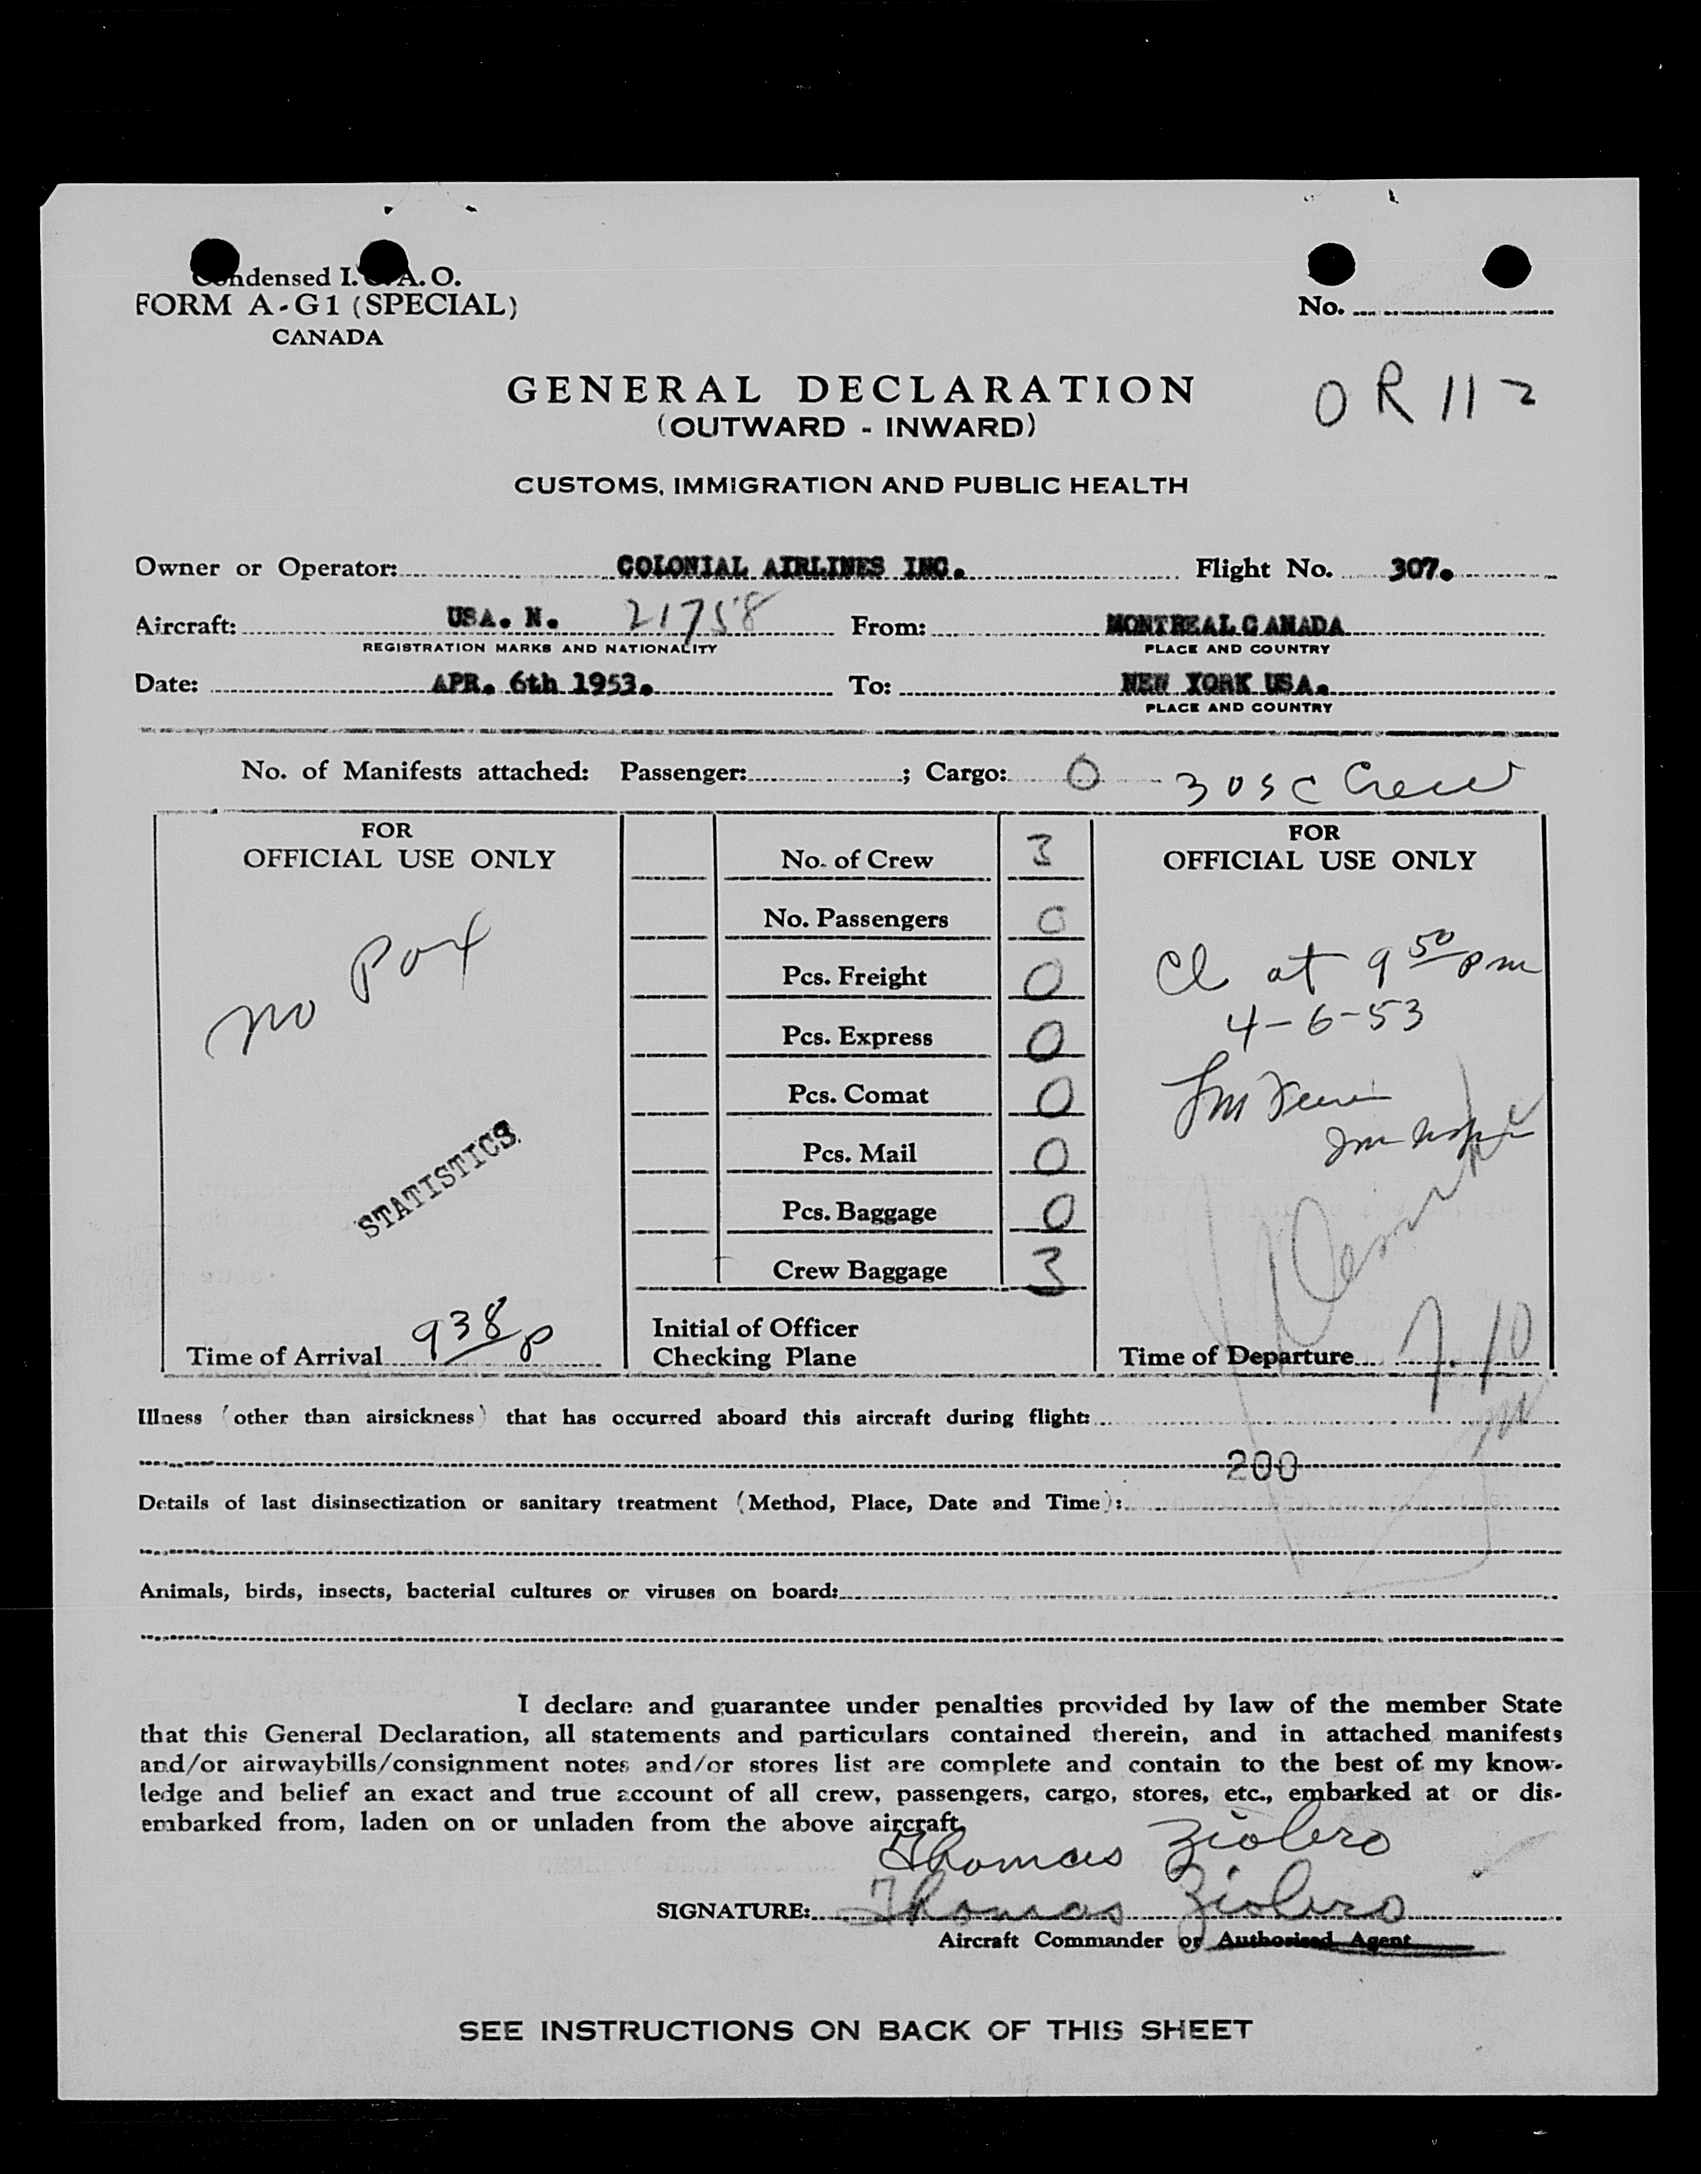 Condensed I.C.A.O.
FORM A-G1 (SPECIAL)
CANADA
No.
OR 112
GENERAL DECLARATION
(OUTWARD - INWARD)
CUSTOMS, IMMIGRATION AND PUBLIC HEALTH
Owner or Operator: COLONIAL AIRLINES INC. Flight No. 307.
Aircraft: USA. N. 21758 From: MONTREAL CANADA
REGISTRATION MARKS AND NATIONALITY PLACE AND COUNTRY
Date: APR. 6th 1953. To: NEW YORK USA.
PLACE AND COUNTRY
No. of Manifests attached: Passenger: ; Cargo: 0 3 USC Crew
FOR
OFFICIAL USE ONLY
no Pax
STATISTICS
Time of Arrival 938 p
No. of Crew 3
No. Passengers 0
Pcs. Freight 0
Pcs. Express 0
Pcs. Comat 0
Pcs. Mail 0
Pcs. Baggage 0
Crew Baggage 3
Initial of Officer
Checking Plane
FOR
OFFICIAL USE ONLY
Cl at 9 50 pm
4-6-53
Time of Departure 7.10
Illness (other than airsickness) that has occurred aboard this aircraft during flight:
200
Details of last disinsectization or sanitary treatment (Method, Place, Date and Time):
Animals, birds, insects, bacterial cultures or viruses on board:
I declare and guarantee under penalties provided by law of the member State
that this General Declaration, all statements and particulars contained therein, and in attached manifests
and/or airwaybills/consignment notes and/or stores list are complete and contain to the best of my know-
ledge and belief an exact and true account of all crew, passengers, cargo, stores, etc., embarked at or dis-
embarked from, laden on or unladen from the above aircraft.
Thomas Ziolero
SIGNATURE: Thomas Ziolero
Aircraft Commander or Authorised Agent
SEE INSTRUCTIONS ON BACK OF THIS SHEET